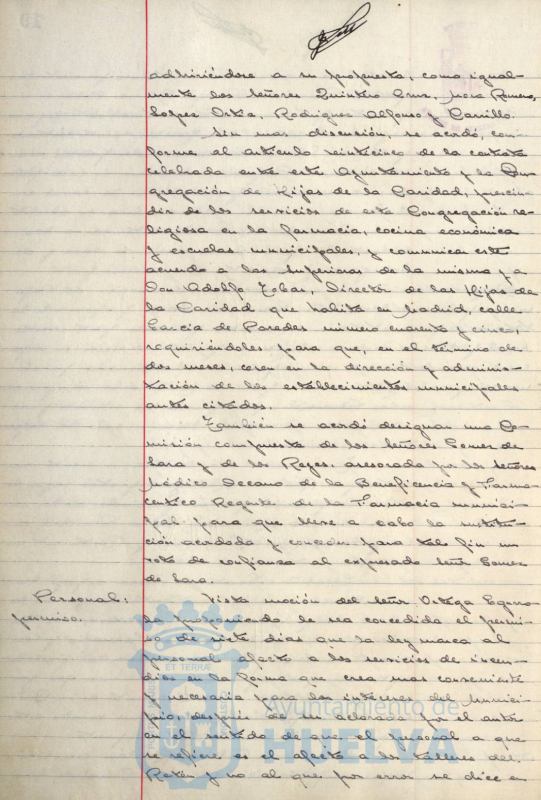 adhiriéndose a su propuesta, como igual-
mente los Señores Quintero Cruz, Mora Romero,
Lopez Ortiz, Rodriguez Alfonso y Carrillo.
Sin mas discusión, se acordó, con-
forme al articulo veinticinco de la contrata
celebrada entre este Ayuntamiento y la Con-
gregación de Hijas de la Caridad, prescin-
dir de los servicios de esta Congregación re-
ligiosa en la farmacia, cocina económica
y escuelas municipales, y comunicar este
acuerdo a las superioras de la misma y a
Don Adolfo Tobar, Director de las Hijas de
la Caridad que habita en Madrid, calle
Garcia de Paredes número cuarenta y cinco,
requiriéndoles para que, en el término de
dos meses, cesen en la dirección y adminis-
tración de los establecimientos municipales
antes citados.
También se acordó designar una Co-
misión compuesta de los Señores Gomez de
Lara y de los Reyes, asesorada por los señores
Médico Decano de la Beneficencia y Farma-
ceutico Regente de la Farmacia munici-
pal para que lleve a cabo la sustitu-
ción acordada y conceder para tal fin un
voto de confianza al expresado Señor Gomez
de Lara.
Personal:
permiso.
Vista moción del Señor Ortega
proponiendo le sea concedido el permi-
so de siete dias que la ley marca al
personal afecto a los servicios de incen-
dios en la forma que crea mas conveniente
y necesaria para los intereses del Munici-
pio, después de aclarada por el autor
en el sentido de que el personal a que
se refiere es el afecto a los talleres del
Retén y no al que por error se dice en
ET TERRAE
Ayuntamiento de
HUELVA